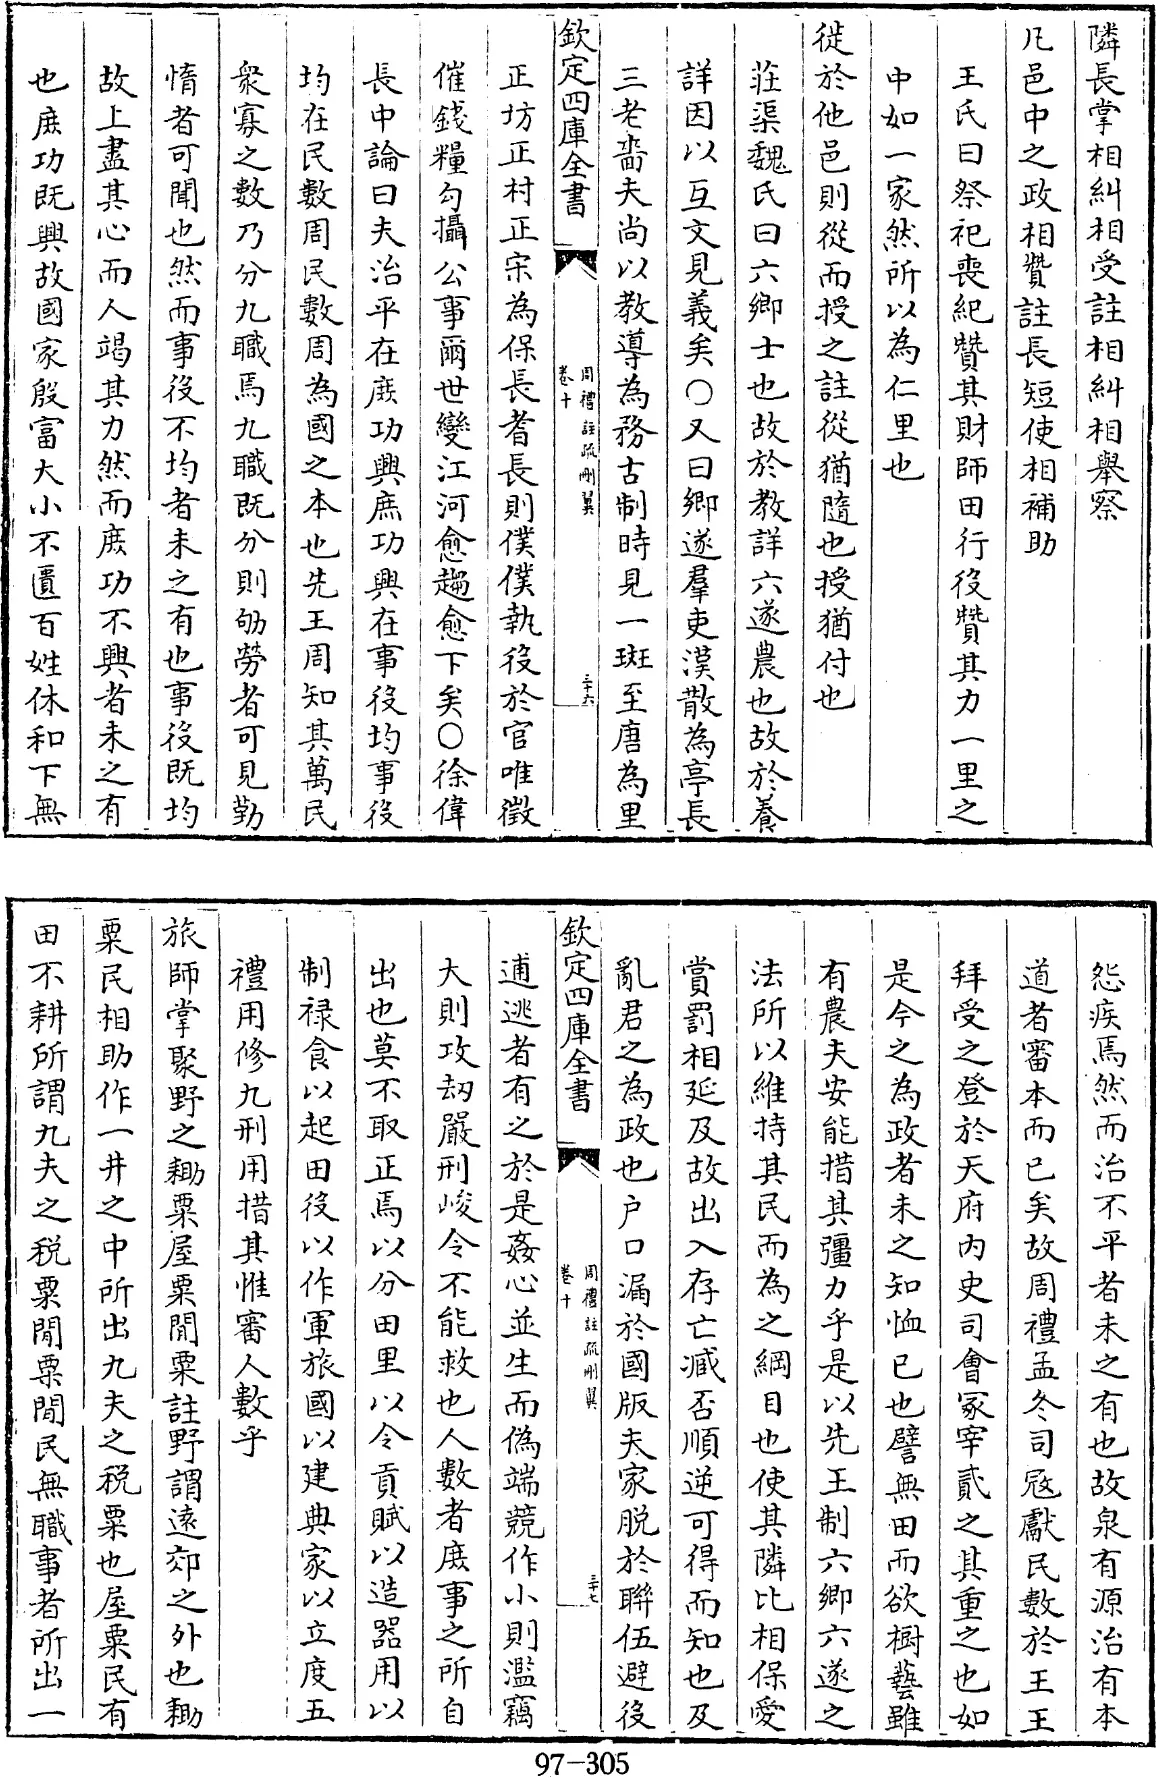 隣長掌相糾相受註相糾相舉察
凡邑中之政相贊註長短使相補助
王氏曰祭祀喪紀贊其財師田行役贊其力一里之
中如一家然所以為仁里也
徙於他邑則從而授之註從猶隨也授猶付也
莊渠魏氏曰六鄉士也故於教詳六遂農也故於養
詳因以互文見義矣〇又曰鄉遂羣吏漢散為亭長
三老嗇夫尚以教導為務古制時見一斑至唐為里
欽定四庫全書
周禮註疏刪翼
卷十
三十六
正坊正村正宋為保長耆長則僕僕執役於官唯徵
催錢糧勾攝公事爾世變江河愈趨愈下矣〇徐偉
長中論曰夫治平在庶功興庶功興在事役均事役
均在民數周民數周為國之本也先王周知其萬民
衆寡之數乃分九職焉九職既分則劬勞者可見勤
惰者可聞也然而事役不均者未之有也事役既均
故上盡其心而人竭其力然而庶功不興者未之有
也庶功既興故國家殷富大小不匱百姓休和下無
怨疾焉然而治不平者未之有也故泉有源治有本
道者審本而已矣故周禮孟冬司寇獻民數於王王
拜受之登於天府內史司會冢宰貳之其重之也如
是今之為政者未之知恤已也譬無田而欲樹藝雖
有農夫安能措其彊力乎是以先王制六鄉六遂之
法所以維持其民而為之綱目也使其隣比相保愛
賞罰相延及故出入存亡臧否順逆可得而知也及
亂君之為政也户口漏於國版夫家脱於聯伍避役
欽定四庫全書
周禮註疏刪翼
卷十
三十七
逋逃者有之於是姦心並生而偽端競作小則濫竊
大則攻劫嚴刑峻令不能救也人數者庶事之所自
出也莫不取正焉以分田里以令貢賦以造器用以
制祿食以起田役以作軍旅國以建典家以立度五
禮用修九刑用措其惟審人數乎
旅師掌聚野之耡粟屋粟閒粟註野謂遠郊之外也耡
粟民相助作一井之中所出九夫之税粟也屋粟民有
田不耕所謂九夫之税粟閒粟閒民無職事者所出一
97-305